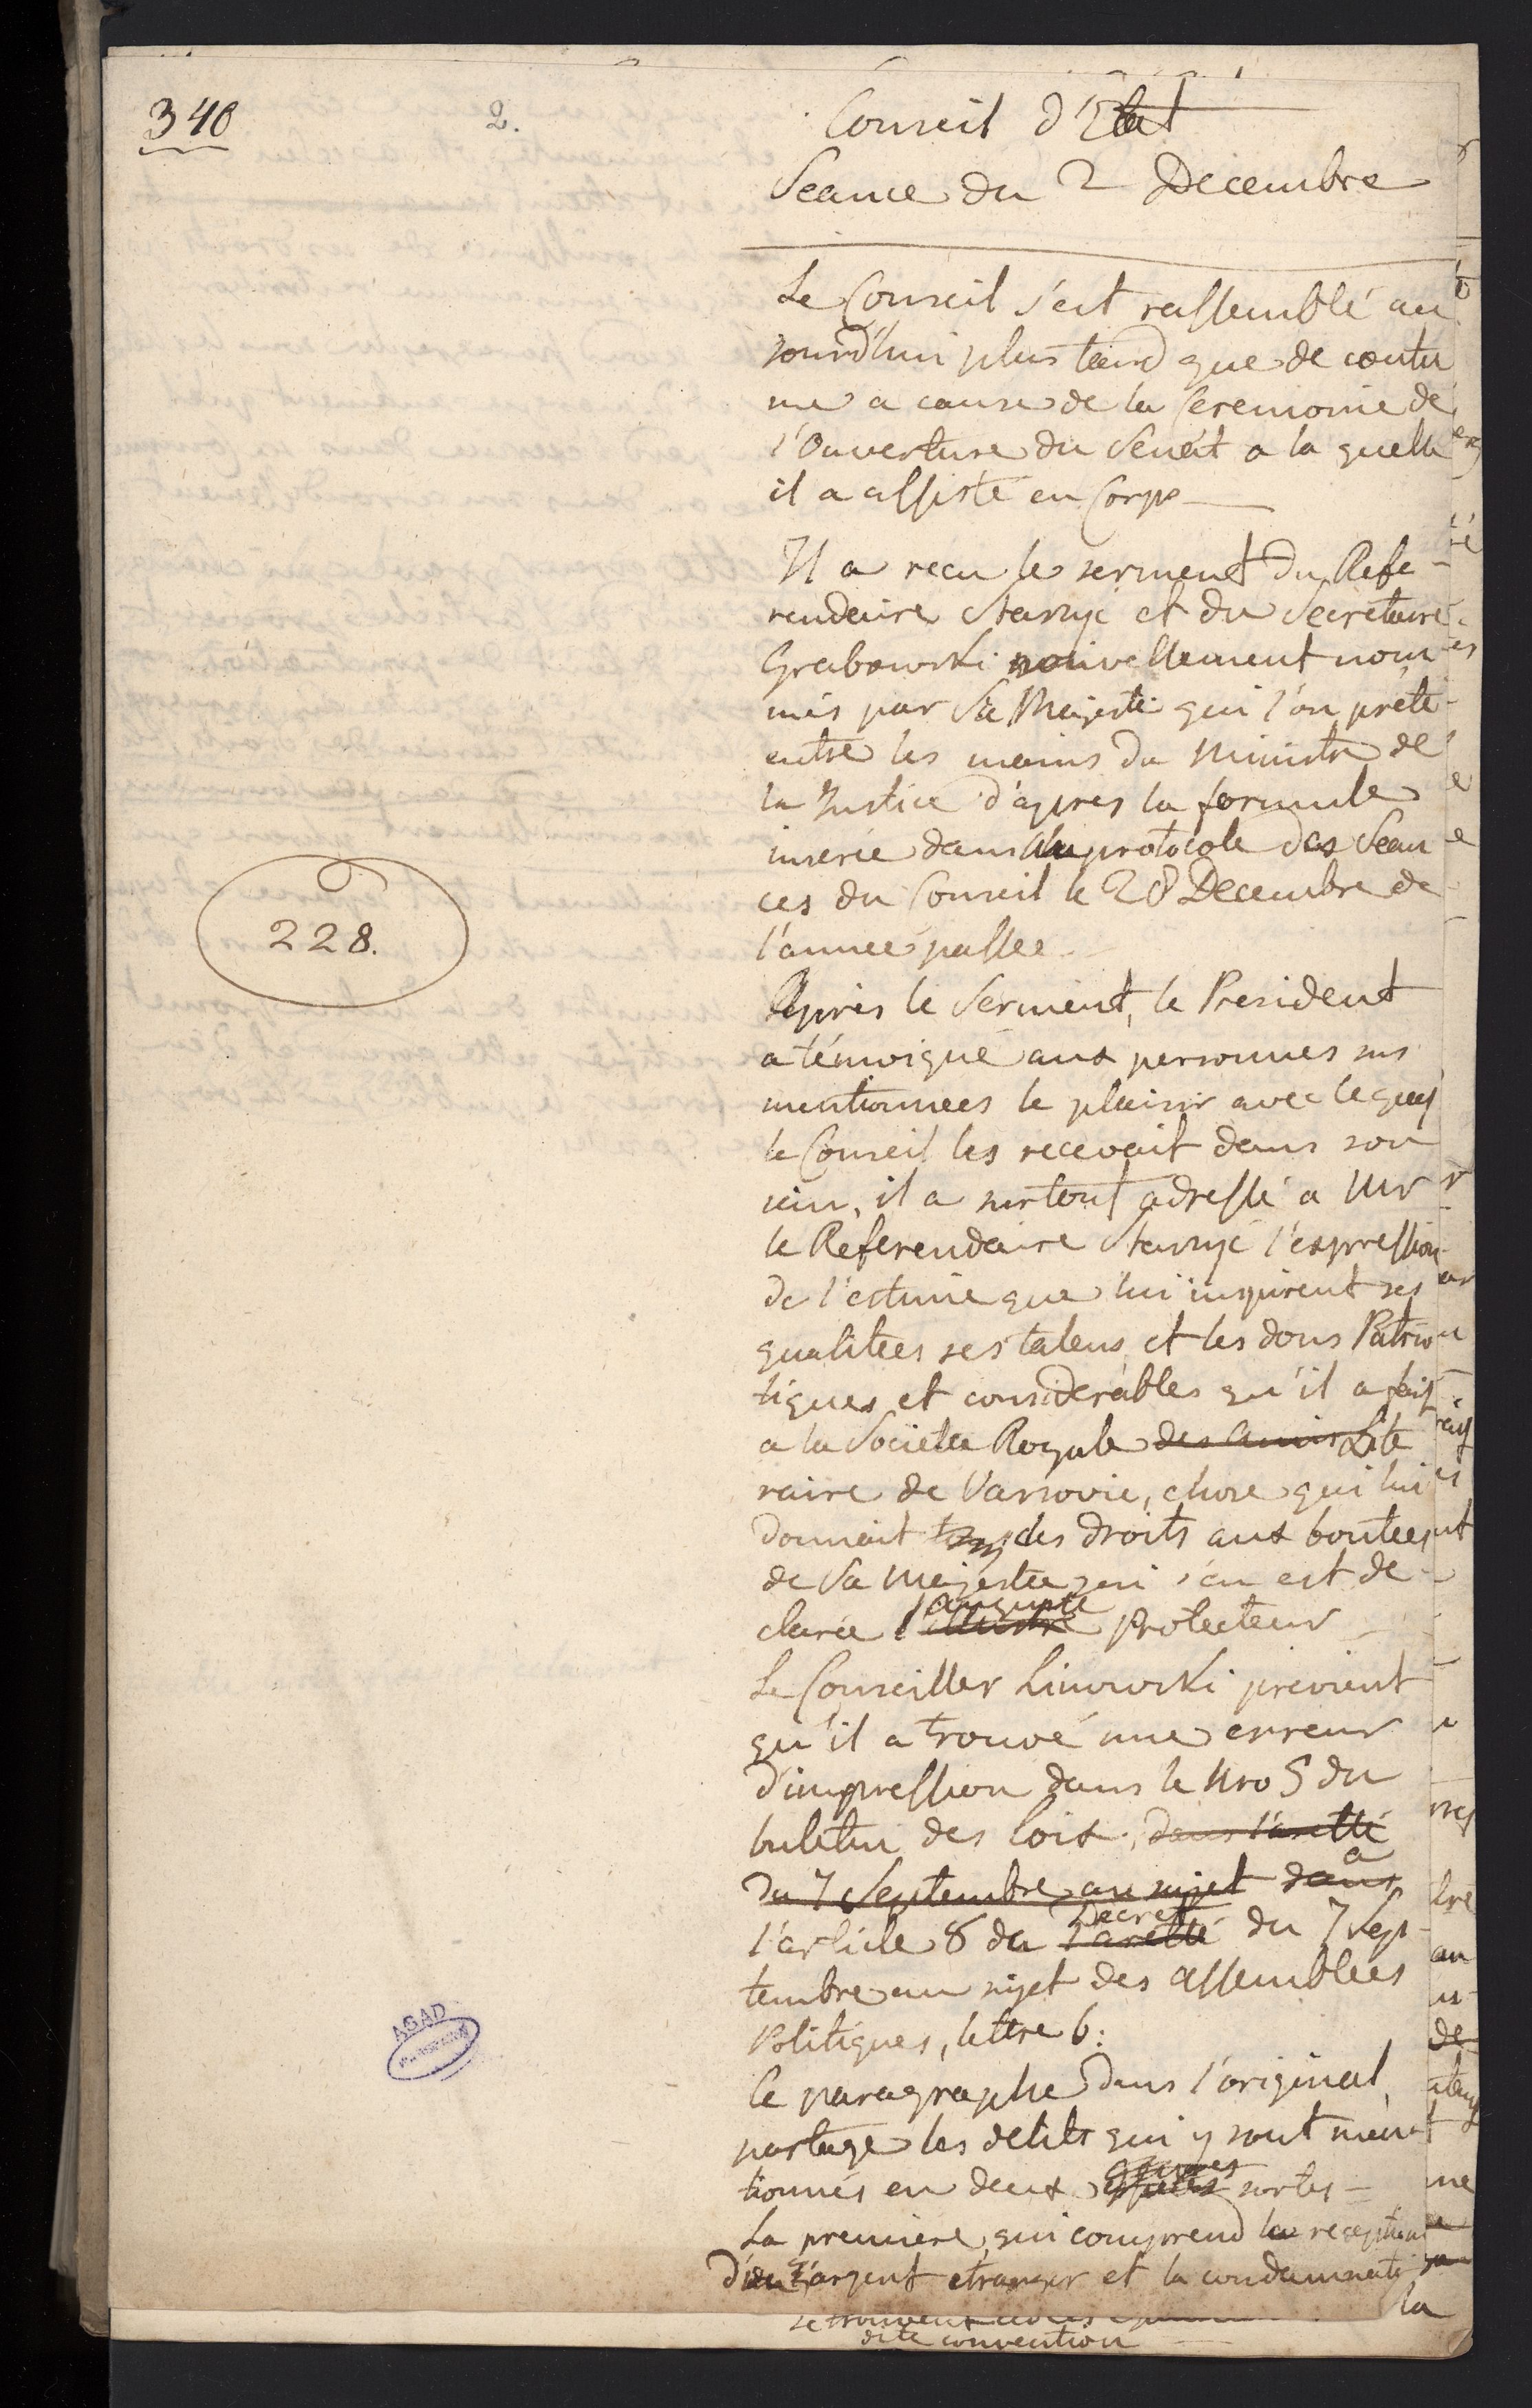 340
2.
Conseil d'Etat
Seance du 2 Decembre
Le Conseil s'est rassemblé au
jourd'hui plus tard que de coutu
me a cause de la Ceremonie de
l'Ouverture du Senat a la quelle
il a assisté en Corps
Il a recu le serment du Refe-
rendaire Staszic et du Secretaire
Grabowski nouvellement nom
més par Sa Majesté qui l'on prété
entre les mains du Ministre de
la Justice d'apres la formule
inserée dans le protocole des Sean
ces du Conseil le 28 Decembre de
l'année passée
228.
Après le Serment, le President
a témoigné aux personnes sus
mentionnees le plaisir avec lequel
le Conseil les recevait dans son
sein, il a surtout adressé a Mr
le Referendaire Staszic l'expression
de l'estime que lui inspirent ses
qualitees ses talens et les dons Patrio
tiques et considerables qu'il a fait
a la Societee Royale des amis Lite
raire de Varsovie, chose qui lui
donnait des droits aux bontees
de Sa Majestee qui s'en est de-
claree l'illustre auguste Protecteur
Le Conseiller Linowski previent
qu'il a trouvé une erreur
d'impression dans le Nro 5 du
buletin des loix, dans l'aretté
du 7 Septembre au sujet dans a
l'article 8 du l'aretté Decret du 7 Sep-
tembre au sujet des assemblées
Politiques, lettre b:
le paragraphe dans l'original
partage les delits qui y sont ment
tionnés en deux sortes =
La premiere, qui comprend la reception
d'argent etranger et la condamnati
la
dite convention
AGAD